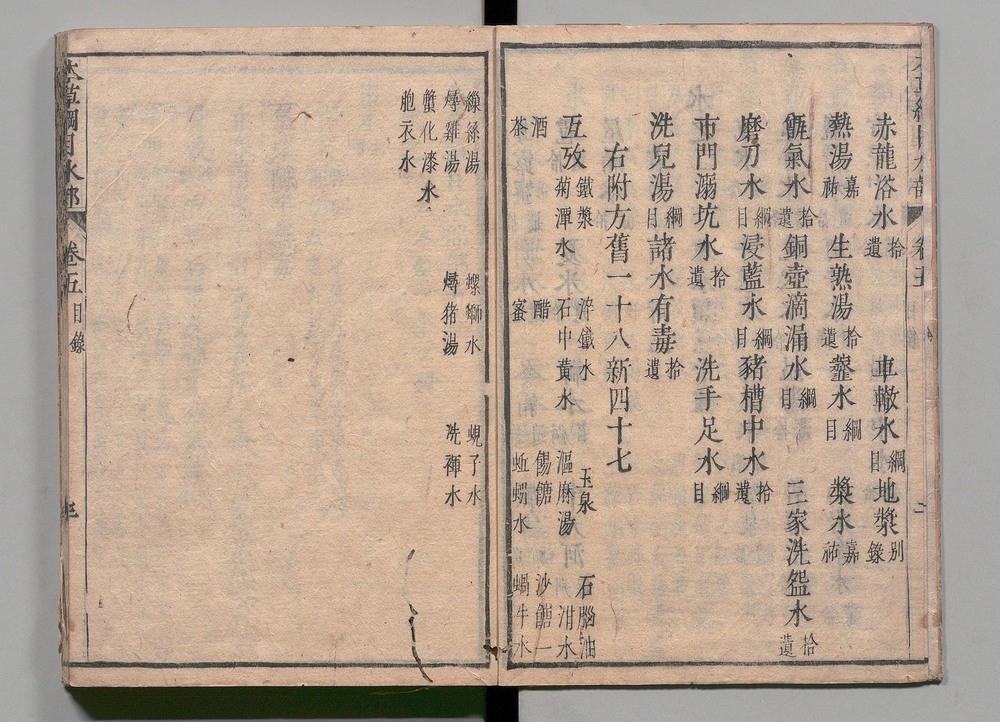 赤龍浴水拾遺 車轍水綱目 地漿别錄
熱湯嘉祐 生熟湯拾遺 虀水綱目 漿水嘉祐
甑氣水拾遺 銅壺滴漏水綱目 三家洗盌水拾遺
磨刀水綱目 浸藍水綱目 豬槽中水拾遺
市門溺坑水拾遺 洗手足水綱目
洗兒湯綱目 諸水有毒拾遺
右附方舊一十八新四十七
互攷 鐵漿 淬鐵水 玉泉 石腦油
菊潭水 石中黃水 漚麻湯 泔水
酒 醋 餳餹 沙餹
茶 蜜 蚯蚓水 蝸牛水
繅絲湯 螺螄水 蜆子水
燖雞湯 燖猪湯 洗褌水
蟹化漆水
胞衣水
本草綱目水部 卷五目錄